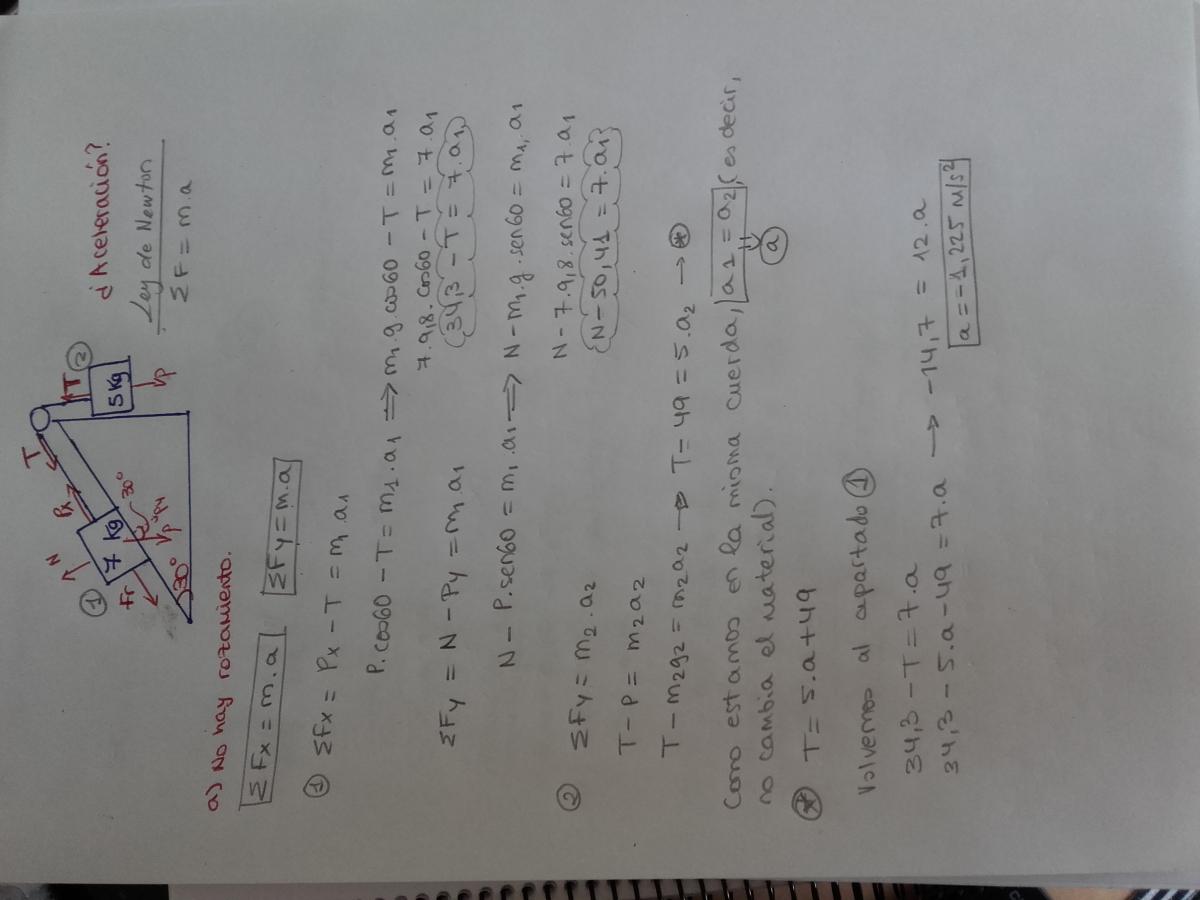 ¿Aceleración?
Ley de Newton
ΣF = m.a
① N Px T T ②
7 kg 5 kg
Fr 30° P Py P
30°
a) No hay rozamiento.
ΣFx = m.a ΣFy = m.a
① ΣFx = Px - T = m1.a1
P.cos60 - T = m1.a1 ⟹ m1.g.cos60 - T = m1.a1
7.9,8.cos60 - T = 7.a1
34,3 - T = 7.a1
ΣFy = N - Py = m1.a1
N - P.sen60 = m1.a1 ⟹ N - m1.g.sen60 = m1.a1
N - 7.9,8.sen60 = 7.a1
N - 50,41 = 7.a1
② ΣFy = m2.a2
T - P = m2a2
T - m2g2 = m2a2 → T - 49 = 5.a2 → ⊛
Como estamos en la misma cuerda, a1 = a2 (es decir,
a
no cambia el material).
⊛ T = 5.a + 49
Volvemos al apartado ①
34,3 - T = 7.a
34,3 - 5.a - 49 = 7.a → -14,7 = 12.a
a = -1,225 m/s²